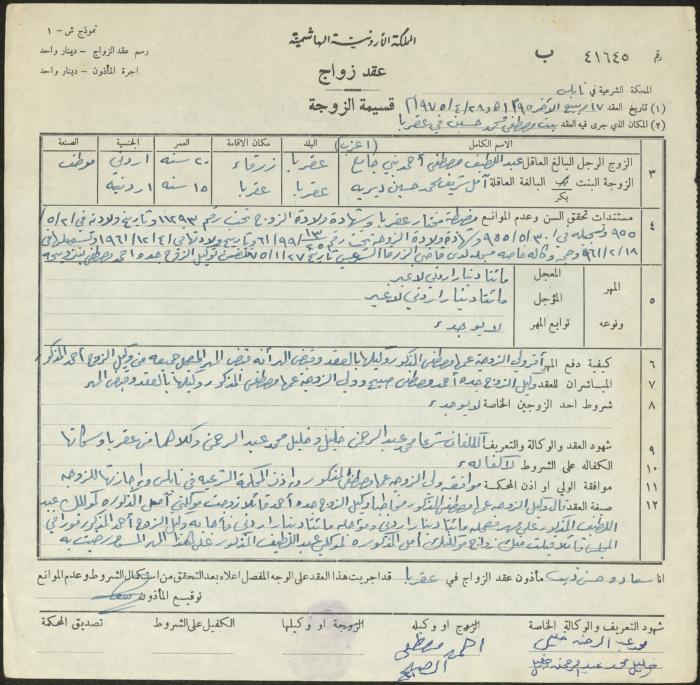 نموذج ش - ١
رسم عقد الزواج - دينار واحد
اجرة المأذون - دينار واحد
المملكة الأردنية الهاشمية
عقد زواج
قسيمة الزوجة
رقم ٤١٦٤٥ ب
المحكمة الشرعية في نابلس
(١) تاريخ العقد ١٧ ربيع الآخر ١٣٩٥ هـ و ٢٨/٤/١٩٧٥ م
(٢) المكان الذي جرى فيه العقد بيت مصطفى محمد حسين في عقربا
الاسم الكامل (اعزب) البلد مكان الاقامة العمر الجنسية الصنعة
٣ الزوج الرجل البالغ العاقل عبد اللطيف مصطفى أحمد بني جامع عقربا زرقاء ٢٠ سنه اردني موظف
الزوجة البنت بكر البالغة العاقلة أمل شريف محمد حسين ديريه عقربا عقربا ١٥ سنه اردنية
٤ مستندات تحقق السن وعدم الموانع مختار عقربا وشهادة ولادة الزوج تحت رقم ١١٢٩٣ وتاريخ ولادته في ٥/٢
٩٥٥ ومسجله في ٣٠/٥/٩٥٥ وشهادة ولادة الزوجه تحت رقم وتاريخ ولادتها في ٤/١٢/١٩٦١ وتسجيلها في
١٨/٢/٩٦١ وحجة وكاله خاصه مسجله لدى قاضي الزرقا الشرعي تاريخ ٢٧/١/٧٥ توكيل الزوج جده احمد مصطفى
٥ المهر ونوعه المعجل مائتا دينار اردني لا غير
المؤجل مائتا دينار اردني لا غير
توابع المهر لا يوجد
٦ كيفية دفع المهر أقر ولي الزوجة عمها مصطفى المذكور وكيلها بالعقد وقبض المهر أنه قبض المهر المعجل جميعه من وكيل الزوج أحمد المذكور
٧ المباشران للعقد وكيل الزوج جده أحمد مصطفى صبيح وولي الزوجة عمها مصطفى المذكور وكيلها بالعقد وقبض المهر
٨ شروط احد الزوجين الخاصة لا يوجد
٩ شهود العقد والوكالة والتعريف المكلفان شرعا محمد عبد الرحمن خليل وخليل محمد عبد الرحمن وكلاهما من عقربا وسكانها
١٠ الكفاله على الشروط لا كفاله
١١ موافقة الولي او اذن المحكمة موافقة ولي الزوجه عمها مصطفى المذكور واذن المحكمة الشرعية في نابلس واجازتها للزوجه
١٢ صيغة العقد قال وكيل الزوجه عمها مصطفى المذكور مخاطبا وكيل الزوج جده أحمد قائلا زوجت موكلتي أمل المذكوره لموكلك عبد
اللطيف المذكور على مهر معجله مائتا دينار اردني ومؤجله مائتا دينار اردني فأجابه وكيل الزوج أحمد المذكور فورا في
المجلس قائلا قبلت منك زواج موكلتك أمل المذكوره لموكلي عبد اللطيف المذكور على هذا المهر المسمى رضيت به
انا مأذون عقد الزواج في عقربا قد اجريت هذا العقد على الوجه المفصل اعلاه بعد التحقق من استكمال الشروط وعدم الموانع
توقيع المأذون
شهود التعريف والوكالة الخاصة الزوج او وكيله الزوجة او وكيلها الكفيل على الشروط تصديق المحكمة
محمد عبد الرحمن خليل
خليل محمد عبد الرحمن خليل
احمد مصطفى
الصبيح